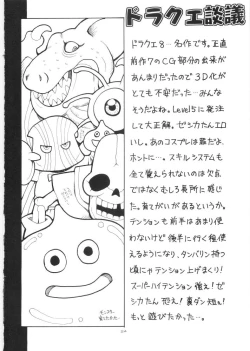 ドラクエ談議
ドラクエ8…名作です。正直
前作7のCG部分の出来が
あんまりだったので3D化が
とても不安だった…みんな
そうだよね。Level5に発注
して大正解。ゼシカたんエロ
いし。あのコスプレは罪だよ。
ホントに…。スキルシステムも
全て覚えられないのは欠点
ではなくむしろ長所に感じ
た。育てがいがあるというか。
テンションも前半はあまり使
わないけど後半に行く程使
えるようになり、タンバリン持つ
頃にゃテンション上がりまくり!
スーパーハイテンション強え!ゼ
シカたん恐え!裏ダン短え!
もっと遊びたかった…。
モンスター